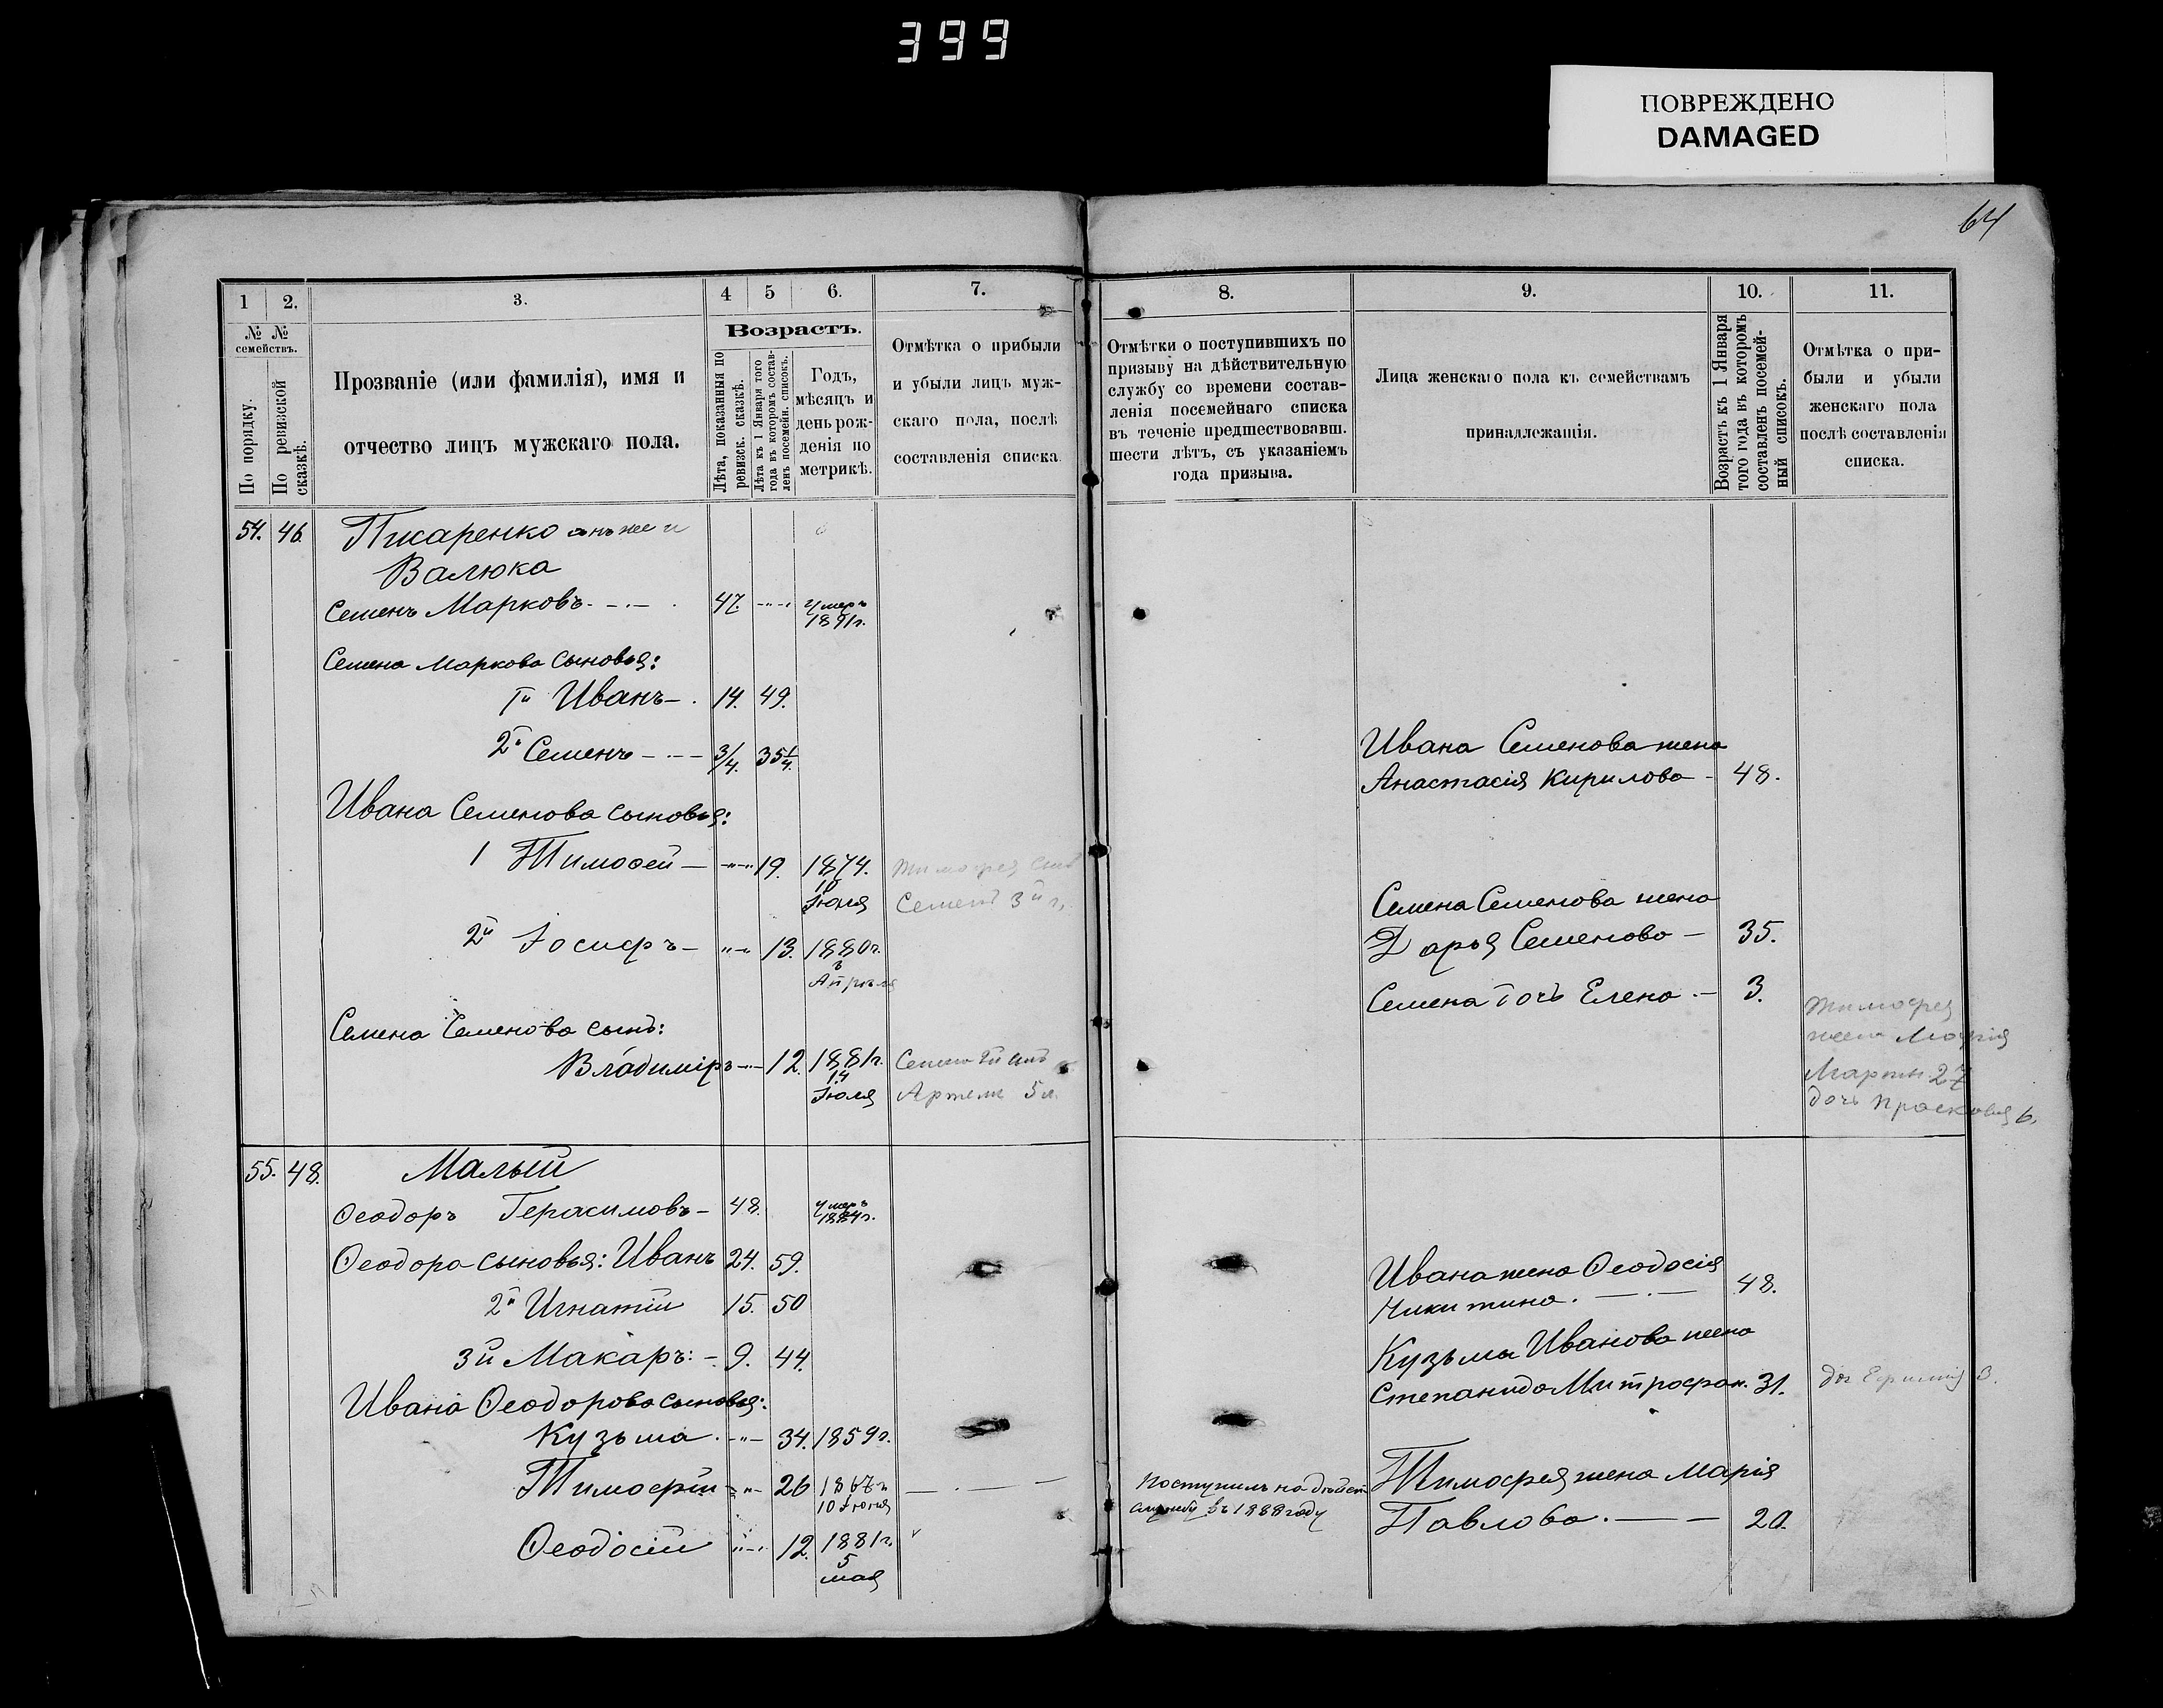 399
ПОВРЕЖДЕНО
DAMAGED
64
1
2.
3.
4
5
6.
7.
№ №
семействъ.
По порядку.
По ревизской
сказкѣ.
Прозваніе (или фамилія), имя и
отчество лицъ мужскаго пола.
Возрастъ.
Лѣта, показанныя по
ревизск. сказкѣ.
Лѣта къ 1 Января того
года въ которомъ состав-
ленъ посемейн. списокъ.
Годъ,
мѣсяцъ и
день рож-
денія по
метрикѣ.
Отмѣтка о прибыли
и убыли лицъ муж-
скаго пола, послѣ
составленія списка
8.
9.
10.
11.
Отмѣтки о поступившихъ по
призыву на дѣйствительную
службу со времени состав-
ленія посемейнаго списка
въ теченіе предшествовавш.
шести лѣтъ, съ указаніемъ
года призыва.
Лица женскаго пола къ семействамъ
принадлежащія.
Возрастъ къ 1 Января
того года въ которомъ
составленъ посемей-
ный списокъ.
Отмѣтка о при-
были и убыли
женскаго пола
послѣ составленія
списка.
54. 46. Писаренко онъ же и
Валюка
Семенъ Марковъ 47. умеръ
1891г.
Семена Маркова сыновья:
1й Иванъ 14. 49.
2й Семенъ 3/4. 35 1/4.
Ивана Семенова сыновья:
1 Тимофей 19. 1874.
10
Іюля
Семенъ 3й г.
2й Іосифъ 13. 1880г.
3
Апрѣля
Семена Семенова сынъ:
Владиміръ 12. 1881г.
14
Іюля
Артемъ 5 л.
Ивана Семенова жена
Анастасія Кирилова 48.
Семена Семенова жена
Дарья Семенова 35.
Семена дочь Елена 3.
Тимофея
жена Марія
Мартын 27
дочь Прасковья 6.
55. 48. Малый
Ѳеодоръ Герасимовъ 48. умеръ
1884г.
Ѳеодора сыновья: Иванъ 24. 59.
2й Игнатій 15. 50
3й Макаръ: 9. 44.
Ивана Ѳеодорова сыновья:
Кузьма 34. 1859г.
Тимофѣй 26 1867г.
10 Іюня
Ѳеодосій 12. 1881г.
5
мая
Поступилъ на дѣйст
службу въ 1888 году
Ивана жена Ѳеодосія
Никитина. 48.
Кузьмы Иванова жена
Степанида Митрофан. 31.
3.
Тимофея жена Марія
Павлова. 20.